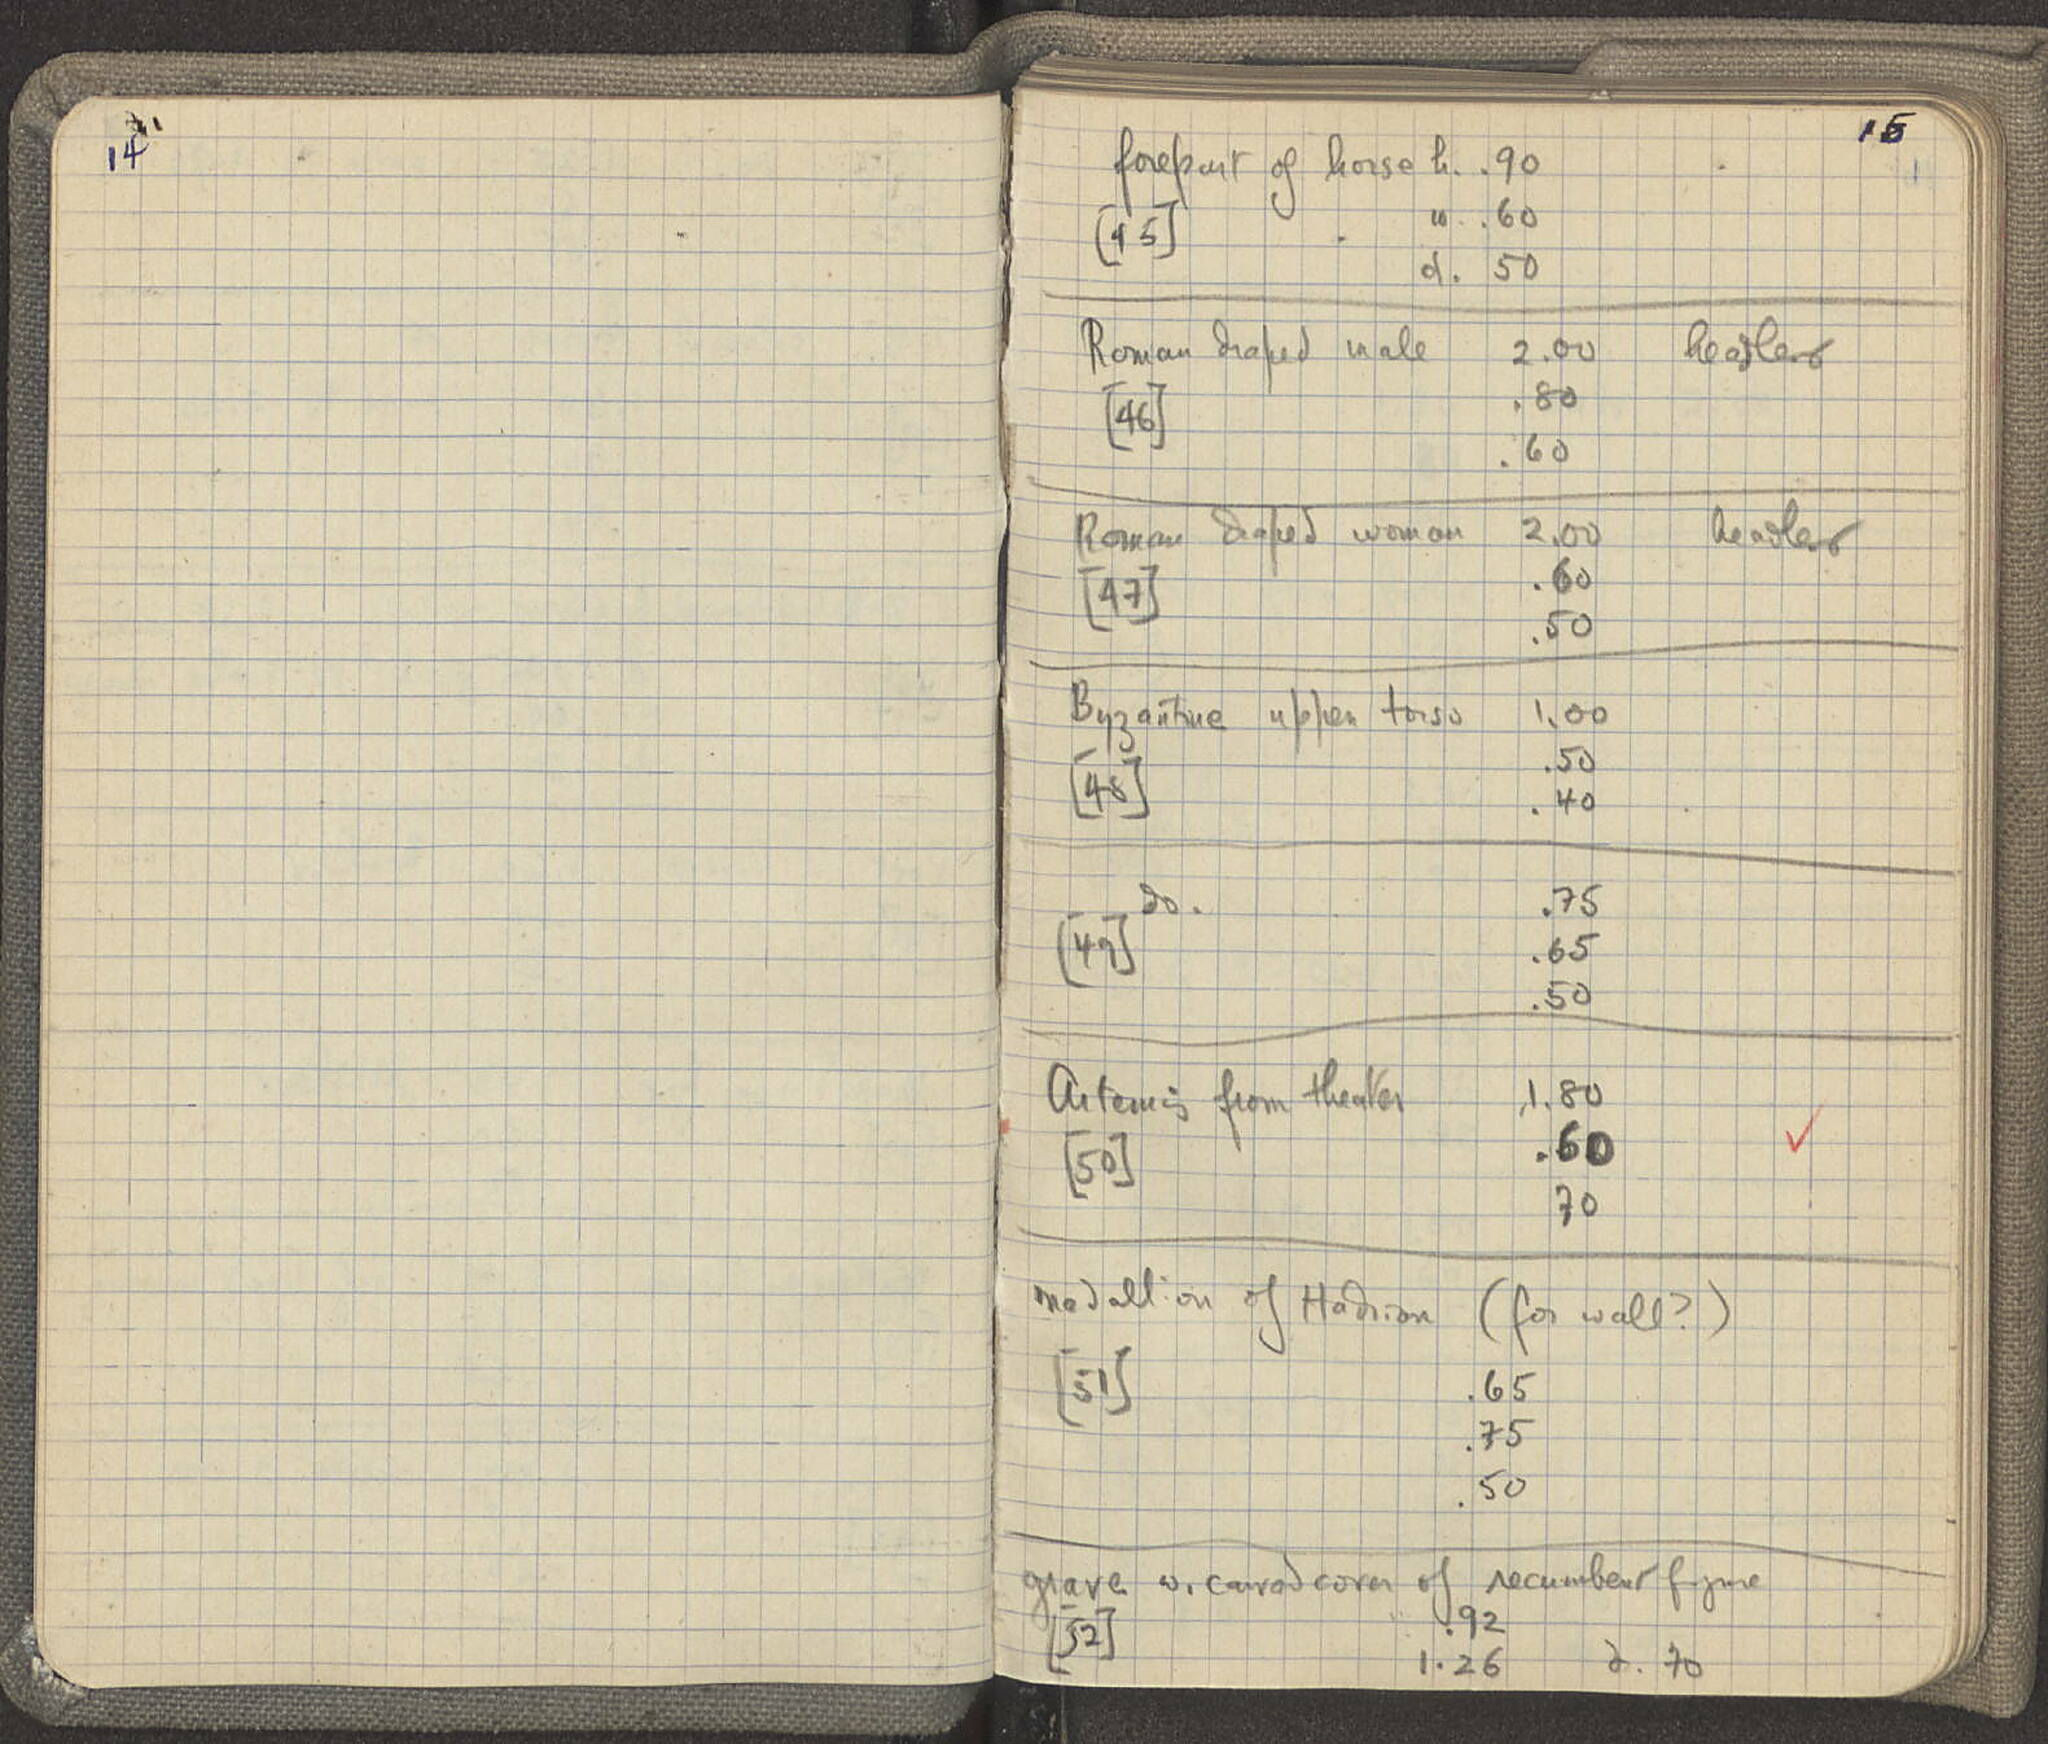 14
15
forepart of horse h. .90
[45] w. .60
d. 50
Roman draped male 2.00 headless
[46] .80
.60
Roman draped woman 2.00 headless
[47] .60
.50
Byzantine upper torso 1.00
[48] .50
.40
do. .75
[49] .65
.50
Artemis from theater 1.80
[50] .60 ✓
70
medallion of Hadrian (for wall?)
[51] .65
.75
.50
grave w. carved cover of recumbent figure
[52] .92
1.26 d. 70